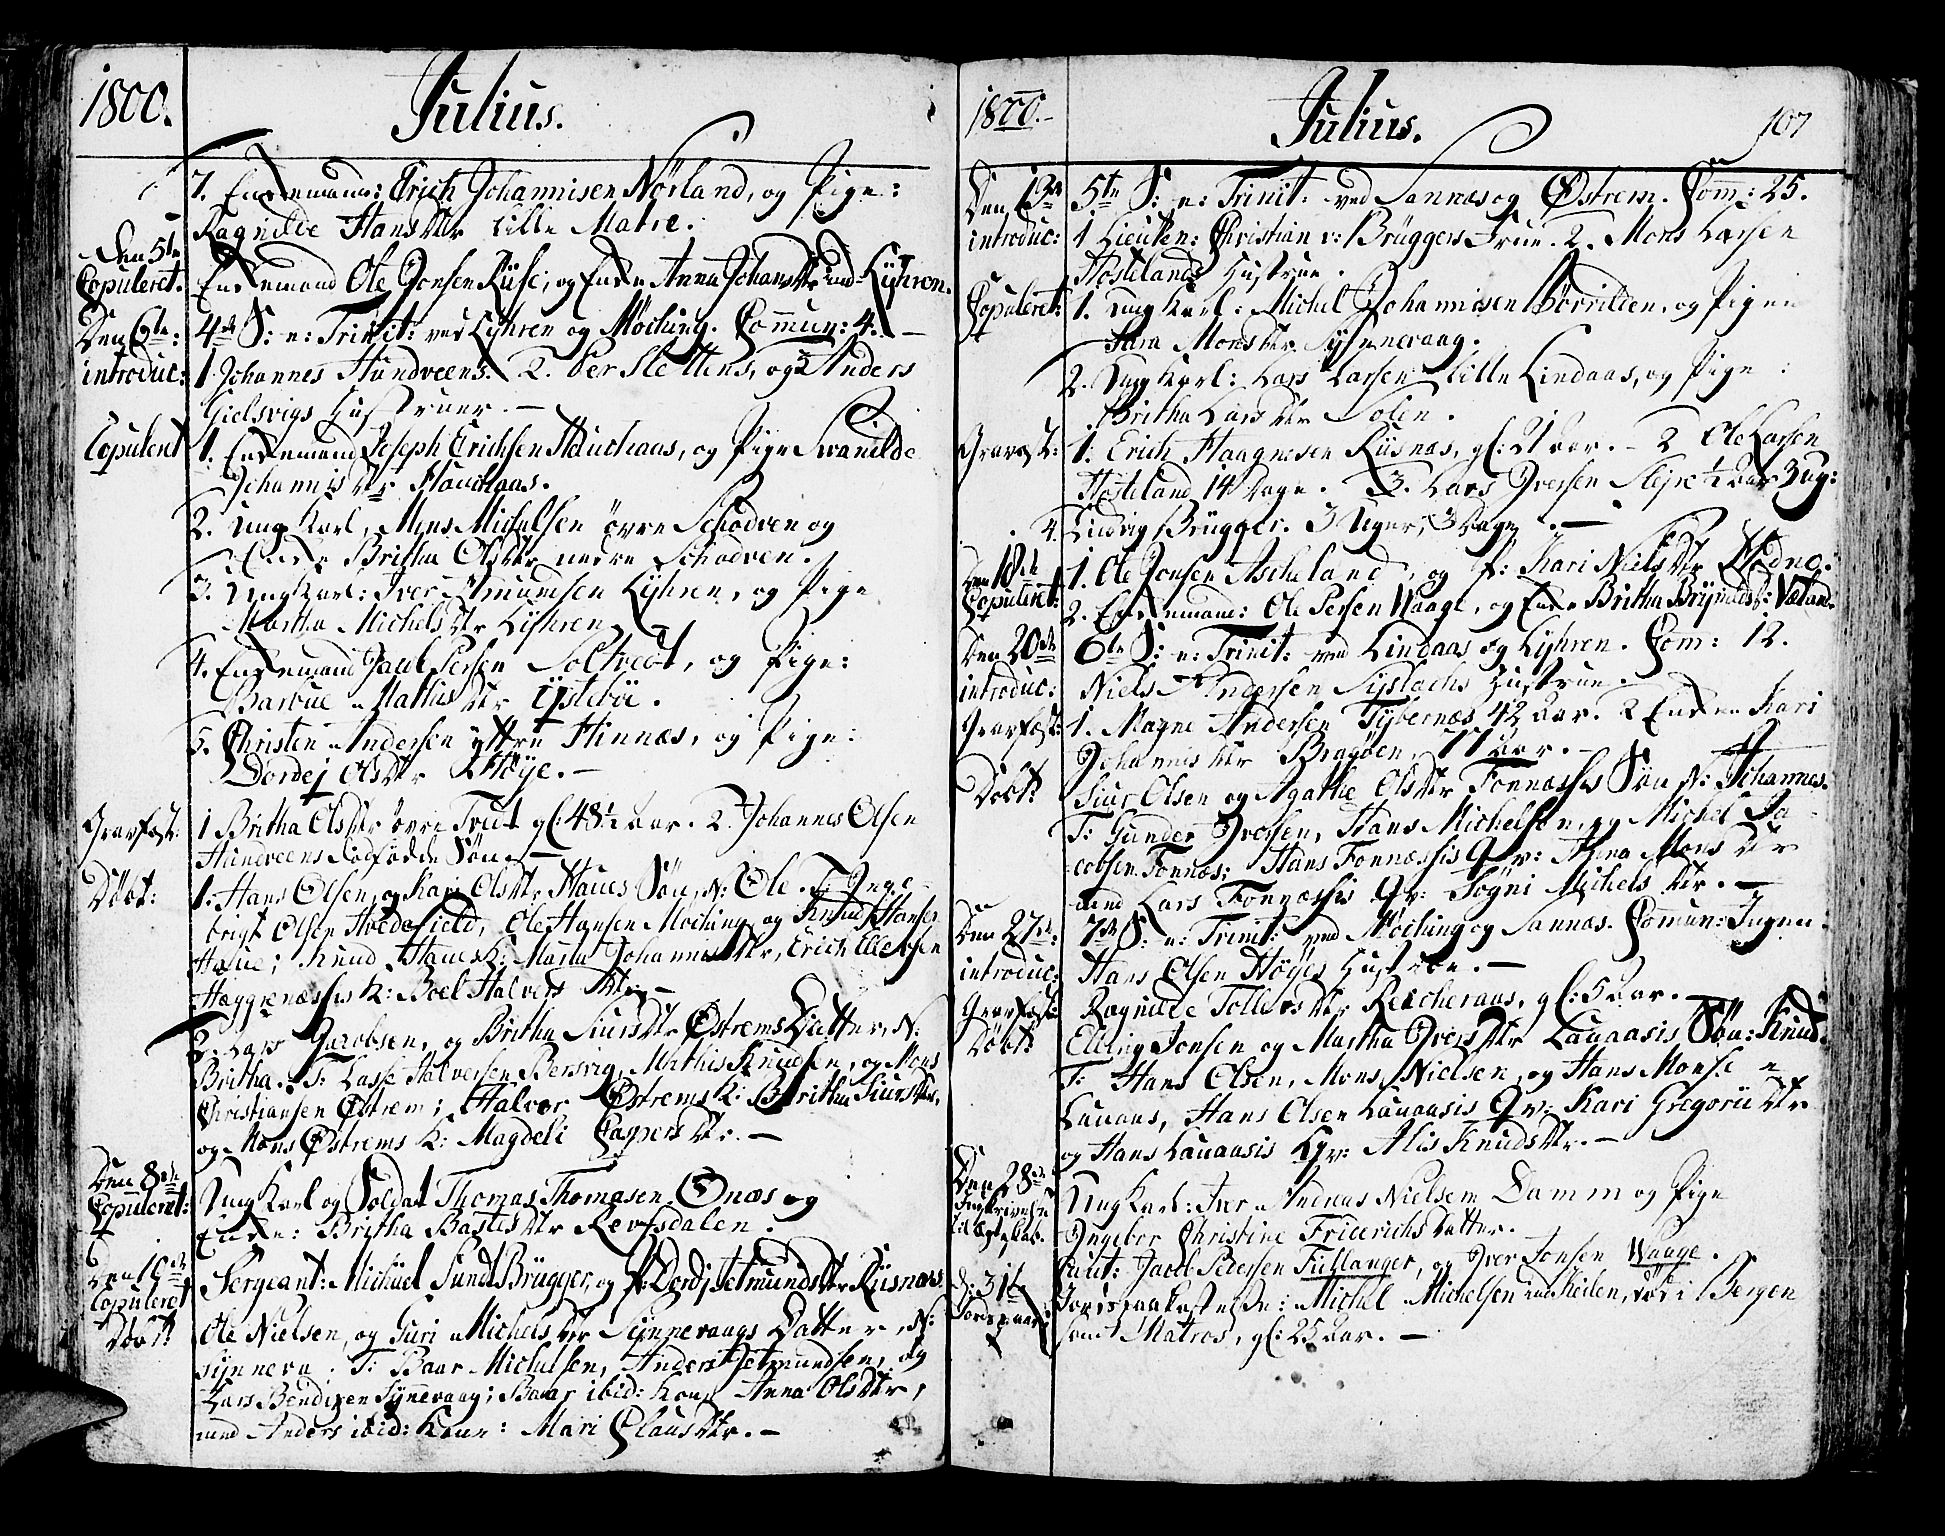 1800. Julius.
7. Enkemand: Erich Johannisen Nörland, og Pige:
Ragnilde Hansdtr lille Matre.
Den 5te
Copuleret. Enkemand Ole Jonsen Riise, og Enke Anna Johansdtr ind Lyhren.
Den 6te: 4de S: n: Trinit: ved Lyhren og Möching. Commun: 4.
introduc: 1. Johannes Hundveens. 2. Per Slettens, og 3 Anders
Gielsvigs Hustruer.
Copulert 1. Enkemand Joseph Erichsen Hauchaas, og Pige Svanilde
Johannisdtr Hauchaas.
2. Ung Karl, Mons Michelsen övre Schodven og
Enke Britha Olsdtr nedre Schodven.
3. Ung Karl: Iver Amundsen Lyhren, og Pige
Martha Michelsdtr Lyhren
4. Enkemand Jacob Persen Soltvedt, og Pige:
Barbue Mathisdtr Ysteböe.
5. Christen Andersen yttre Hinnæs, og Pige:
Dordej Olsdtr Höye.
Gravfæst: 1 Britha Olsdtr övre Tvedt gl: 48½ aar. 2. Johannes Olsen
Hundveens dödfödde Sön.
Döbt: 1. Hans Olsen, og Kari Olsdtr Haues Sön, N: Ole. T: Inge-
brigt Olsen Hvedefield, Ole Hansen Möching og Knud Hansen
Haue; Knud Haues K: Marta Johannisdtr, Erich Ellevsen
Hæggrenæssis K: Boel Halvorsdtr.
2. Lars Jacobsen, og Britha Siursdtr Østrems Datter, N:
Britha. T: Lasse Halversen Bersvig, Mathis Knudsen, og Mons
Christiansen Østrem; Halvor Østrems K: Britha Siursdtr,
og Mons Østrems K: Magdeli Caspersdtr.
Den 8de
Copuleret: Ung Karl og Soldat Thomas Thomasen Onæs og
Enke: Britha Bastesdtr Revfsdalen.
Den 10de
Copuleret Sergeant: Michael Sundt Brügger, og P: Dordj Jetmundsdtr Riisnæs.
Döbt: Ole Nielsen, og Guri Michelsdtr Synnevaags Datter, N:
Synneva. T: Baar Michelsen, Anders Jetmundsen, og
Lars Bendixen Synnevaag; Baar ibid: Kone Anna Olsdtr,
und Anders ibid: Kone: Mari Clausdtr.
1800. Julius. 107
Den 13de 5te S: n: Trinit: ved Sannæs og Østrem. Comm: 25.
introduc: 1 Lieuten: Christian v: Brüggers Frue. 2. Mons Larsen
Hostelands Hustrue.
Copuleret: 1. Ung Karl: Michel Johannisen, og Pigen
Sara Monsdtr Synnevaag.
2. Ung Karl: Lars Larsen lille Lindaas, og Pige:
Britha Larsdtr Solen.
Gravfæst: 1. Erich Haagnesen Riisnæs, gl: 21 aar. 2 Ole Larsen
Hosteland 14 Dage. 3. Lars Iversen Slejre ½ aar 3 ug:
4. Ludvig Brügger. 3 Uger, 3 Dage.
Den 18de
Copuleret: 1. Ole Jonsen Ascheland, og P: Kari Nielsdtr Kidno.
2. Enkemand: Ole Persen Waage, og Enke Britha Brynildsd:
Den 20de 6te S: n: Trinit: ved Lindaas og Lyhren. Com: 12.
introduc: Niels Andersen Syslachs Hustrue.
Gravfæst: 1. Magne Andersen Tybernæs 42 aar. 2 Enken Kari
Johannisdtr Bragöen, 77 aar.
Döbt: Siur Olsen og Agathe Olsdtr Fonnæssis Sön N: Johannes.
T: Gunder Iversen, Hans Michelsen, og Michel Ja-
cobsen Fonnæs; Hans Fonnæssis Qv: Anna Monsdtr
und Lars Fonnæssis Qv: Sögni Michelsdtr.
Den 27de: 7de S: n: Trinit: ved Möching og Sannæs. Commun: Ingen.
introduc: Hans Olsen Höyes Hustrue.
Gravfæst: Ragnilde Tollevsdtr Reicheraas, gl: 5 aar.
Döbt: Elling Jonsen og Martha Iversdtr Lauaasis Sön: Knud.
T: Hans Olsen, Mons Nielsen, og Hans Monsen
Lauaas, Hans Olsen Lauaasis Qv: Kari Gregoriidtr
og Hans Lauaasis Qv: Alis Knudsdtr.
Den 28de Ung Karl: Iver Andreas Nielsen Damm og Pige
Ingebor Christine Friderichs Datter.
Cavit: Jacob Pedersen Fuhlanger, og Iver Jonsen Waage.
D: 31te Jordspaakastelse: Michel Michelsen ind Keilen, död i Bergen
som Matros, gl: 25 aar.